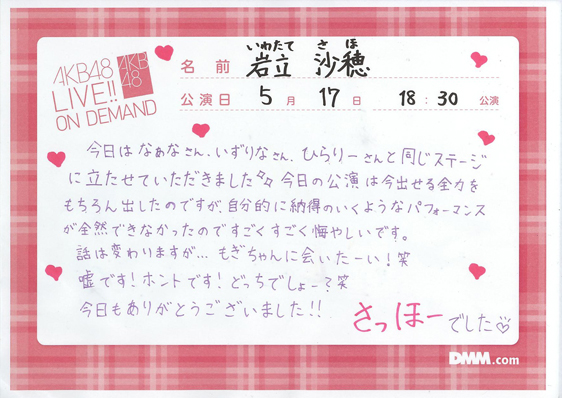 AKB48
LIVE!!
ON DEMAND
AKB
48
いわたて さほ
名前 岩立 沙穂
公演日 5月 17日 18:30 公演
今日はなぁなさん、いずりなさん、ひらりーさんと同じステージ
に立たせていただきました 今日の公演は今出せる全力を
もちろん出したのですが、自分的に納得のいくようなパフォーマンス
が全然できなかったのですごくすごく悔やしいです。
話は変わりますが… もぎちゃんに会いたーい!笑
嘘です!ホントです!どっちでしょー?笑
今日もありがとうございました!!
さっほーでした♡
DMM.com